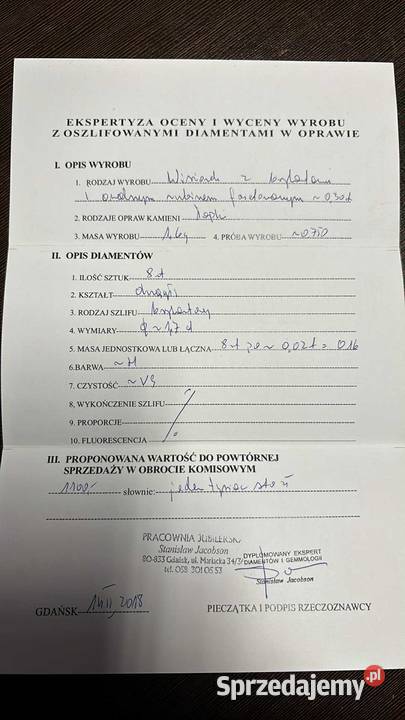 EKSPERTYZA OCENY I WYCENY WYROBU
Z OSZLIFOWANYMI DIAMENTAMI W OPRAWIE
I. OPIS WYROBU
1. RODZAJ WYROBU Wisiorek z brylantami
i owalnym rubinem fasetowanym ~ 0,30ct
2. RODZAJE OPRAW KAMIENI łapki
3. MASA WYROBU 1,6g 4. PRÓBA WYROBU ~0,750
II. OPIS DIAMENTÓW
1. ILOŚĆ SZTUK 8
2. KSZTAŁT okrągły
3. RODZAJ SZLIFU brylantowy
4. WYMIARY ϕ ~ 1,7
5. MASA JEDNOSTKOWA LUB ŁĄCZNA 8 ~ 0,02 = 0,16
6.BARWA ~ H
7. CZYSTOŚĆ ~ VS
8, WYKOŃCZENIE SZLIFU
9. PROPORCJE
10. FLUORESCENCJA
III. PROPONOWANA WARTOŚĆ DO POWTÓRNEJ
SPRZEDAŻY W OBROCIE KOMISOWYM
1100,- słownie: jeden tysiąc sto zł
PRACOWNIA JUBILERSKA
Stanisław Jacobson
80-833 Gdańsk, ul. Mariacka 34/3
tel. 058 301 05 53
DYPLOMOWANY EKSPERT
DIAMENTÓW I GEMMOLOGII
Stanisław Jacobson
GDAŃSK 2018
PIECZĄTKA I PODPIS RZECZOZNAWCY
Sprzedajemy.pl